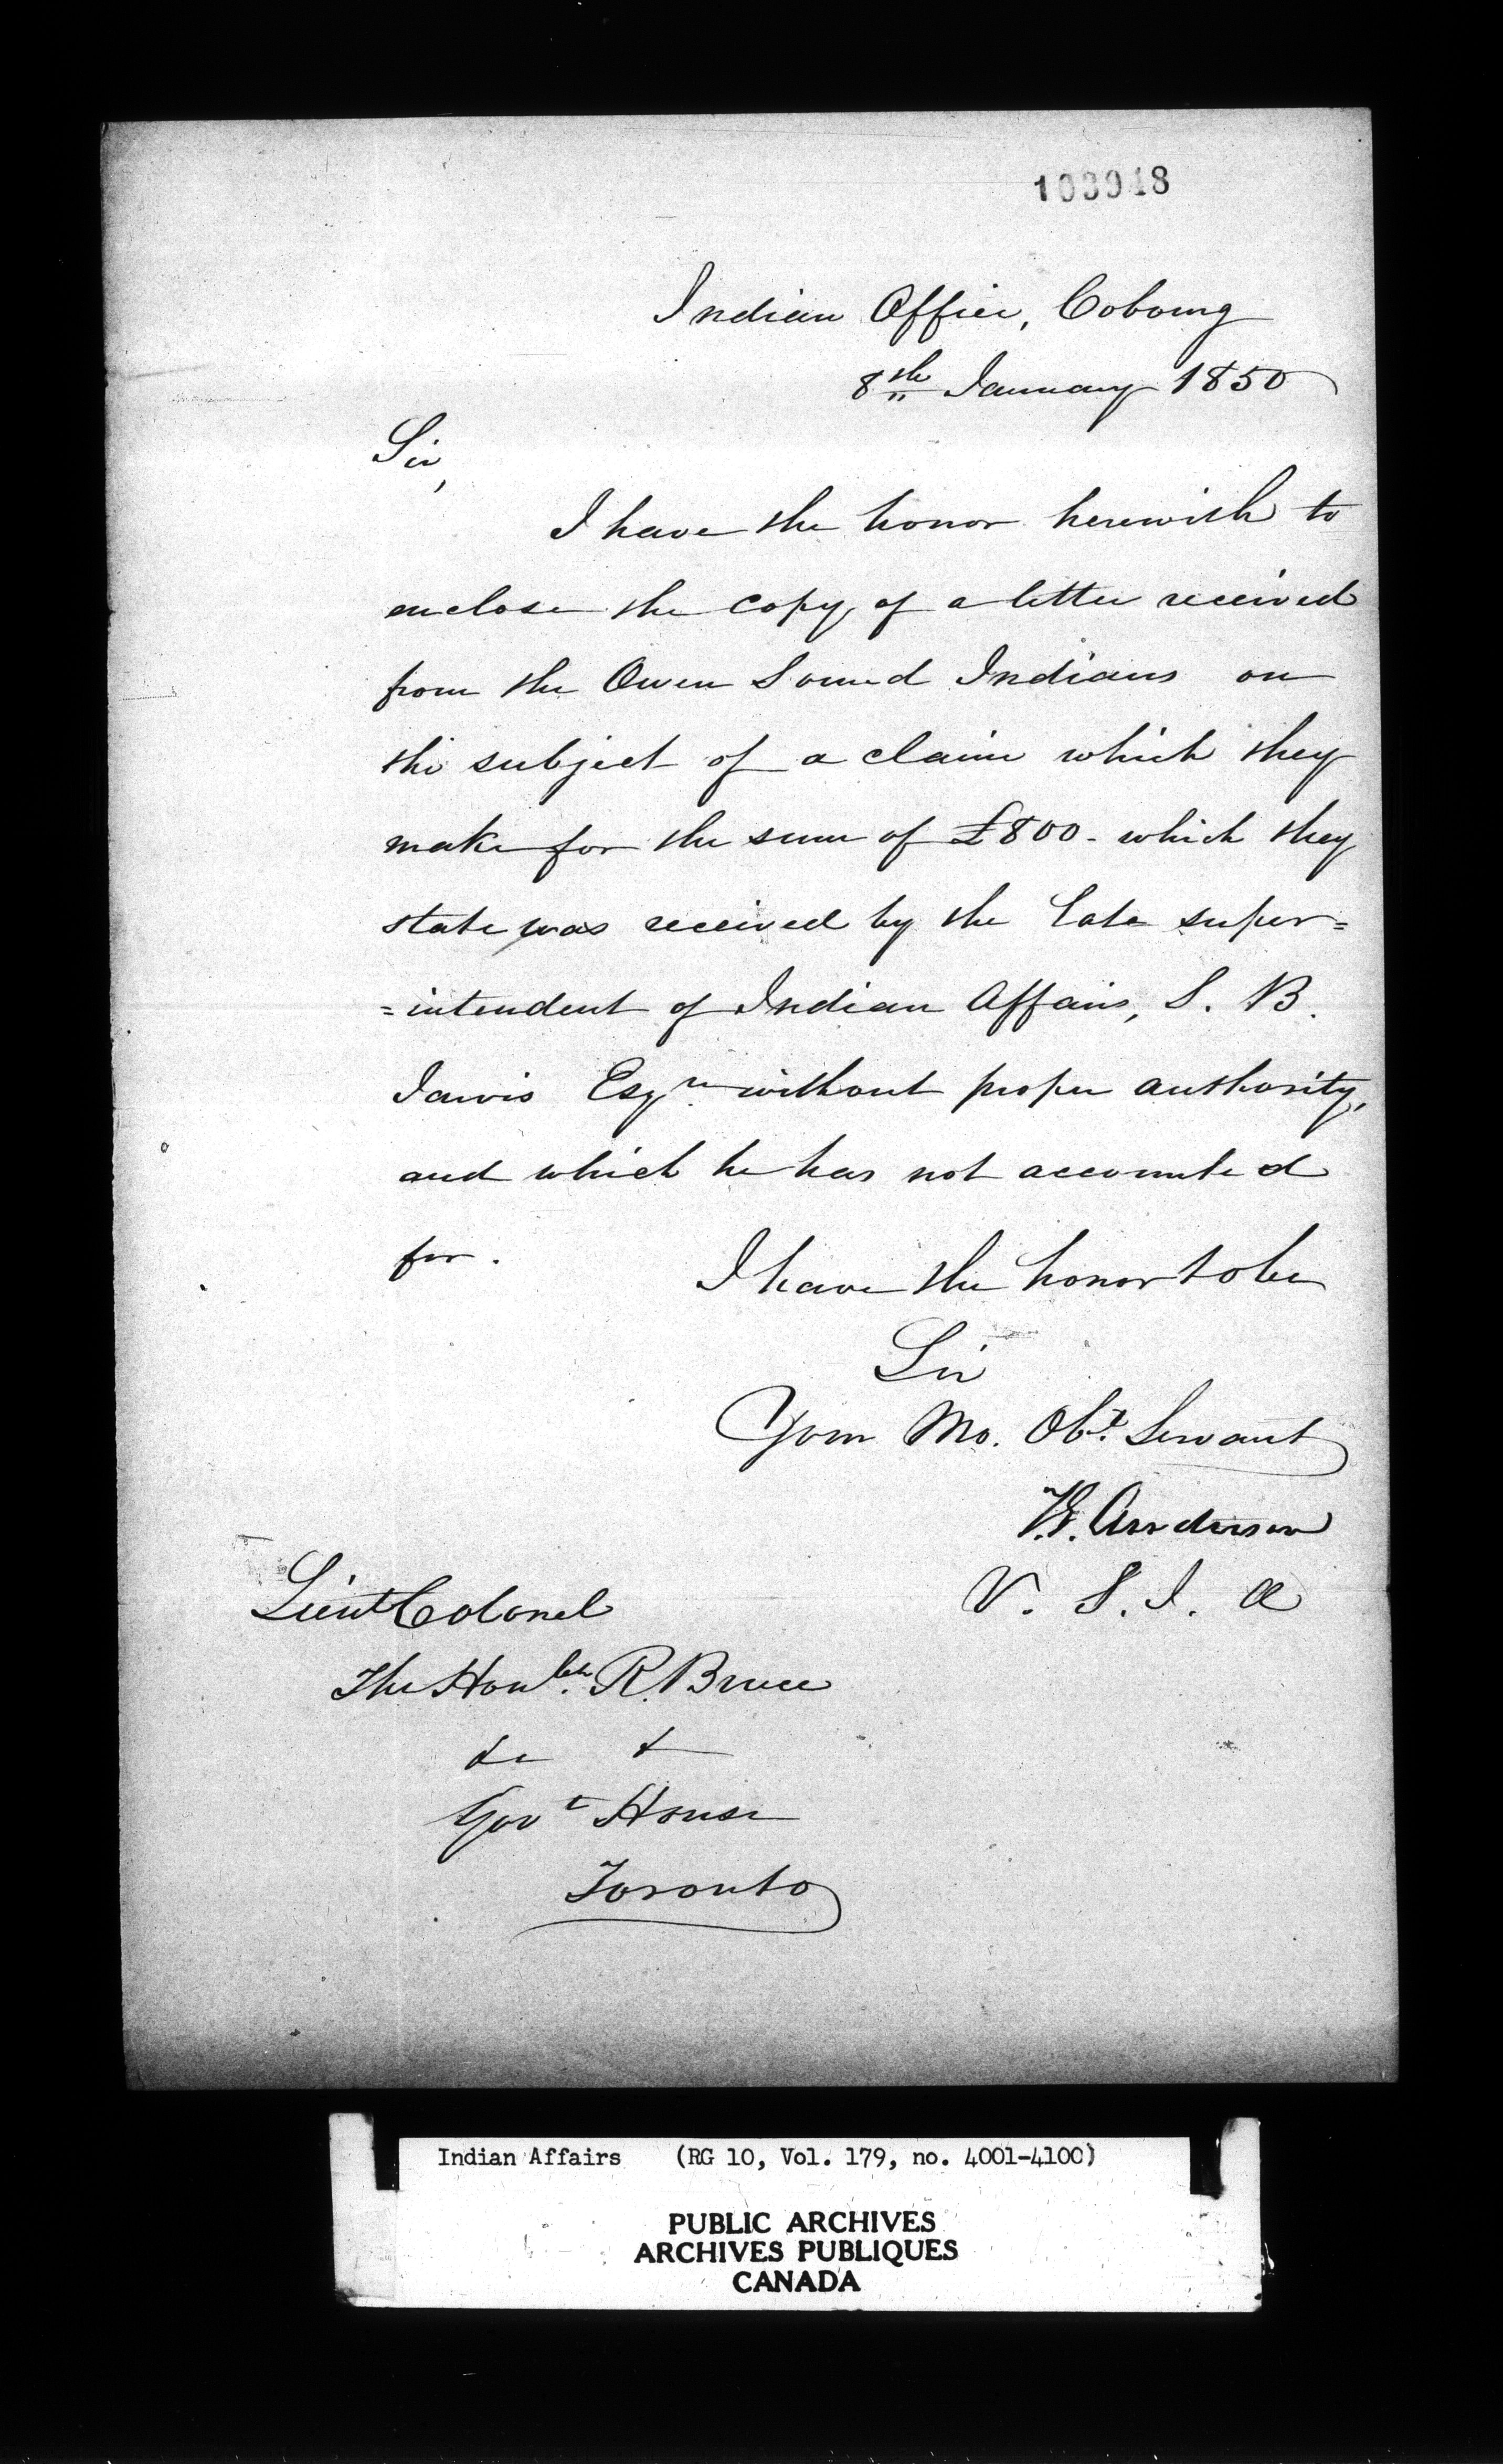 103948
Indian Office, Cobourg
8th January 1850
Sir,
I have the honor herewith to
enclose the copy of a letter received
from the Owen Sound Indians on
the subject of a claim which they
make for the sum of £800- which they
state was received by the late super=
=intendent of Indian Affairs, S. B.
Jarvis Esqre without proper authority,
and which he has not accounted
for.
I have the honor to be
Sir
Your Mo. Obt. Servant
T.G. Anderson
V. S. I. A
Lieut Colonel
The Honble. R. Bruce
&c &
Govt House
Toronto
Indian Affairs (RG 10, Vol. 179, no. 4001-4100)
PUBLIC ARCHIVES
ARCHIVES PUBLIQUES
CANADA